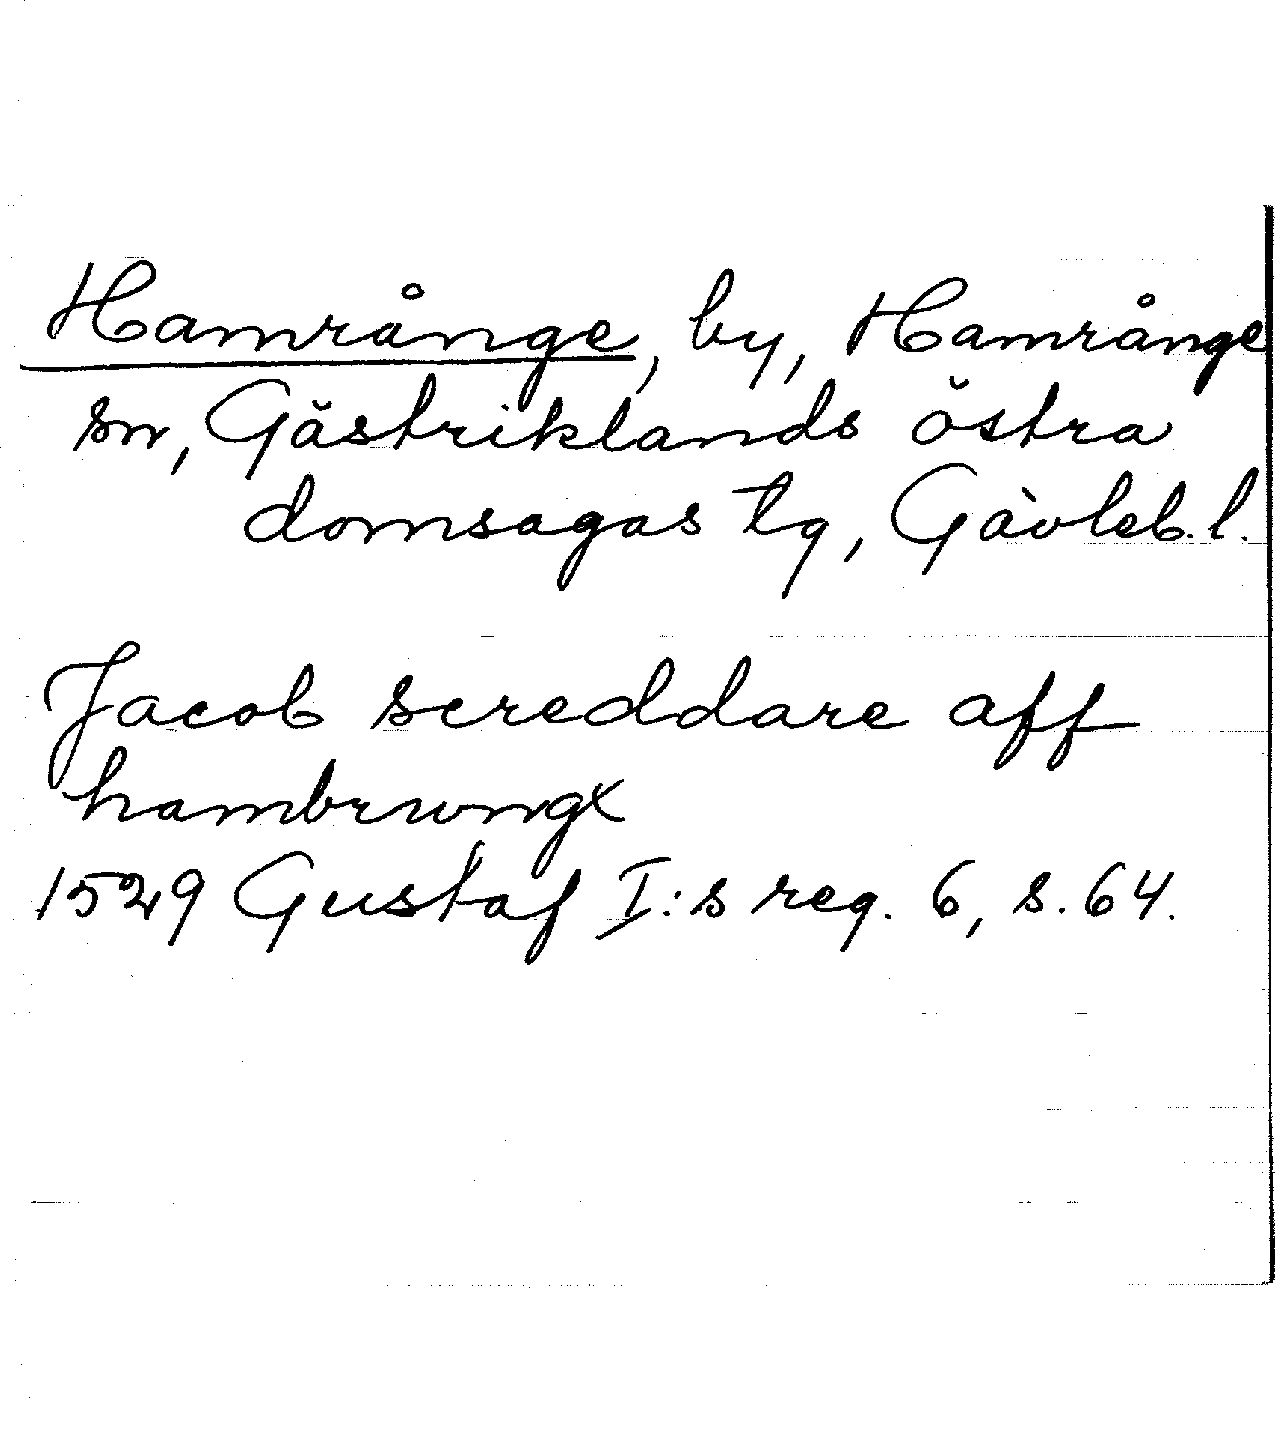 Hamrånge, by, Hamrånge
sn, Gästriklands östra
domsagas tg, Gävleb. l.
Jacob screddare aff
hambrungx
1529 Gustaf I:s reg. 6, s. 64.